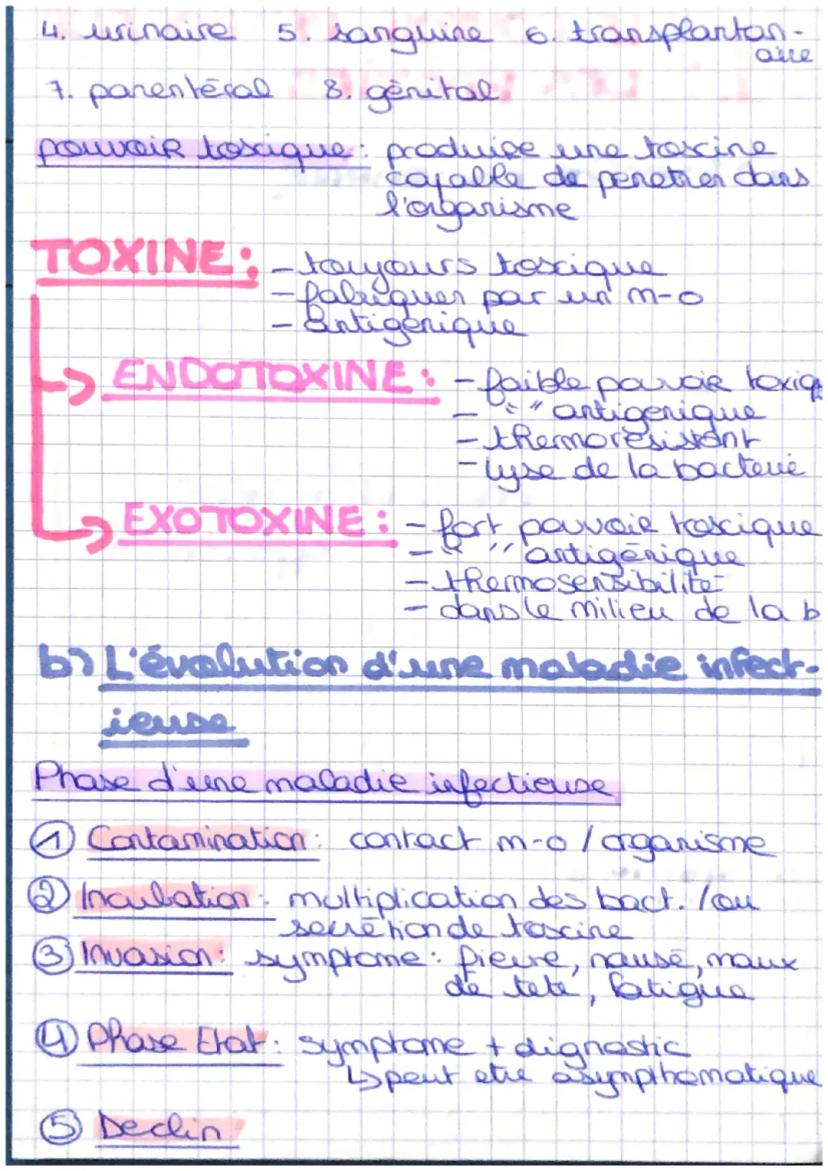 4. urinaire 5. sanguine 6. transplantan-
aire
7. parentéral 8. génital
pouvoir toxique : produire une toxine
capable de penetrer dans
l'organisme
TOXINE : - toujours toxique
- fabriquer par un m-o
- antigénique
ENDOTOXINE : - faible pouvoir toxiq
- " " antigenique
- thermorésistant
- lyse de la bacterie
EXOTOXINE : - fort pouvoir toxique
- " " antigénique
- thermosensibilité
- dans le milieu de la b
b) L'évolution d'une maladie infect-
ieuse
Phase d'une maladie infectieuse
① Contamination : contact m-o / organisme
② Incubation : multiplication des bact. /ou
secrétion de toxine
③ Invasion : symptome : fievre, nausé, maux
de tete, fatigue
④ Phase Etat : symptome + dignostic
↳ peut etre asympthomatique
⑤ Declin